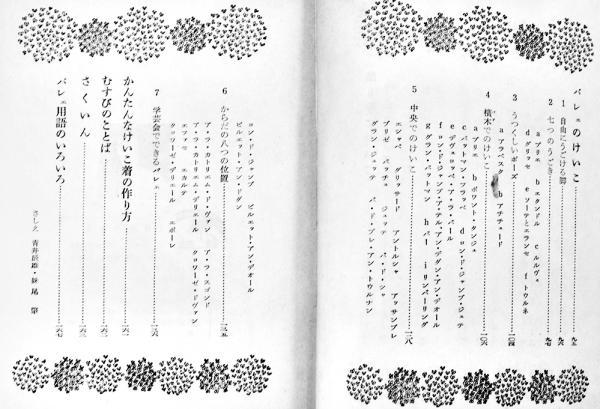 バレエのけいこ……九五
1 自由にうごける脚……九六
2 七つのうごき……九七
a プリエ b エタンドル c ルルヴィ
d グリッセ e ソーテとエランセ f トウルネ
3 うつくしいポーズ……一〇四
a アラベスク b アチチュード
4 横木でのけいこ……一〇六
a プリエ b ポワント・タンジュ
c バットマン・フラッペ d ロン・ド・ジャンプ・ジュテ
e デヴロッペ・アッラ・バール
f ロン・ド・ジャンプ・ア・テル・アン・デダン・アン・デオール
g グラン・バットマン h バー i リンバーリング
5 中央でのけいこ……一一八
エシャペ グリッサード アントルシャ アッサンブレ
ブリゼ バッチュ ジュッテ パ・ド・シャ
グラン・ジュッテ パ・ド・ブレ・アン・トウルナン
ロン・ド・ジャンプ ピルエット・アン・デオール
ピルエット・アン・ドダン
6 からだの八つの位置……一三五
ア・ラ・カトリエム・ド・ヴァン ア・ラ・スゴンド
ア・ラ・カトリエム・デリエール クロワーゼ・ドヴァン
エファセ エカルテ
クロワーゼ・デリエール エポーレ
7 学芸会でできるバレエ……一五六
かんたんなけいこ着の作り方……一六一
むすびのことば……一六二
さくいん……一六三
バレエ用語のいろいろ……一六七
さしえ 青井辰雄・妹尾 肇